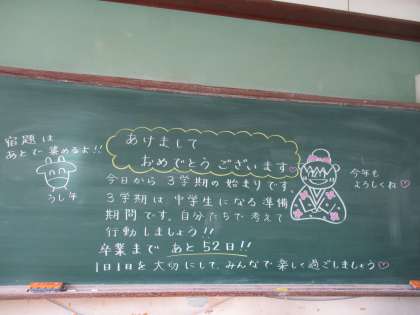 宿題は
あとで集めるよ!!
うし年
あけまして
おめでとうございます♡
今日から3学期の始まりです。
3学期は中学生になる準備
期間です。自分たちで考えて
行動しましょう!!
卒業まであと52日!!
1日1日を大切にして、みんなで楽しく過ごしましょう♡
今年も
よろしくね♡